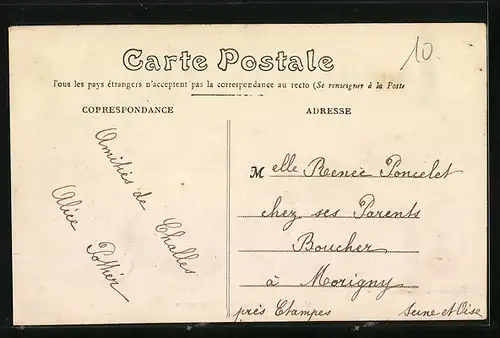 Carte Postale
10
Tous les pays étrangers n'acceptent pas la correspondance au recto (Se renseigner à la Poste
CORRESPONDANCE
ADRESSE
Amitiés de Challes
Alice Pothier
Melle Renée Poncelet
chez ses Parents
Boucher
à Morigny
près Etampes Seine et Oise